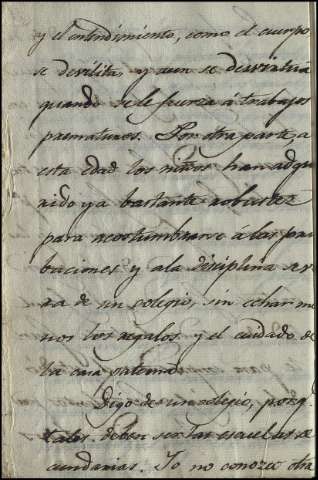 y el entendimiento, como el cuerpo
se devilita, y aun se desvirtua
quando se le fuerza á trabajos
prematuros. Por otra parte, a
esta edad los niños han adqui
rido ya bastante robustez
para acostumbrarse á las pri
baciones y ala disciplina seve
ra de un colegio, sin echar me
nos los regalos y el cuidado de
la casa paterna.
Digo de un colegio, porq
tales deben ser las escuelas se
cundarias. Yo no conozco otra